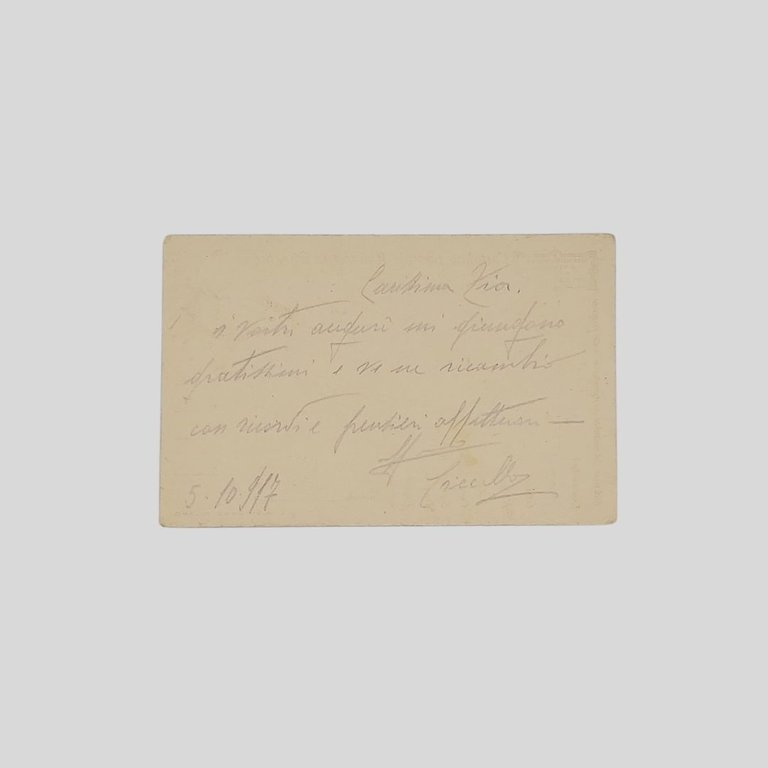 Carissima Zia.
i Vostri auguri mi giungono
gratissimi e ve ne ricambio
con ricordi e pensieri affettuosi —
Aff
5-10-917